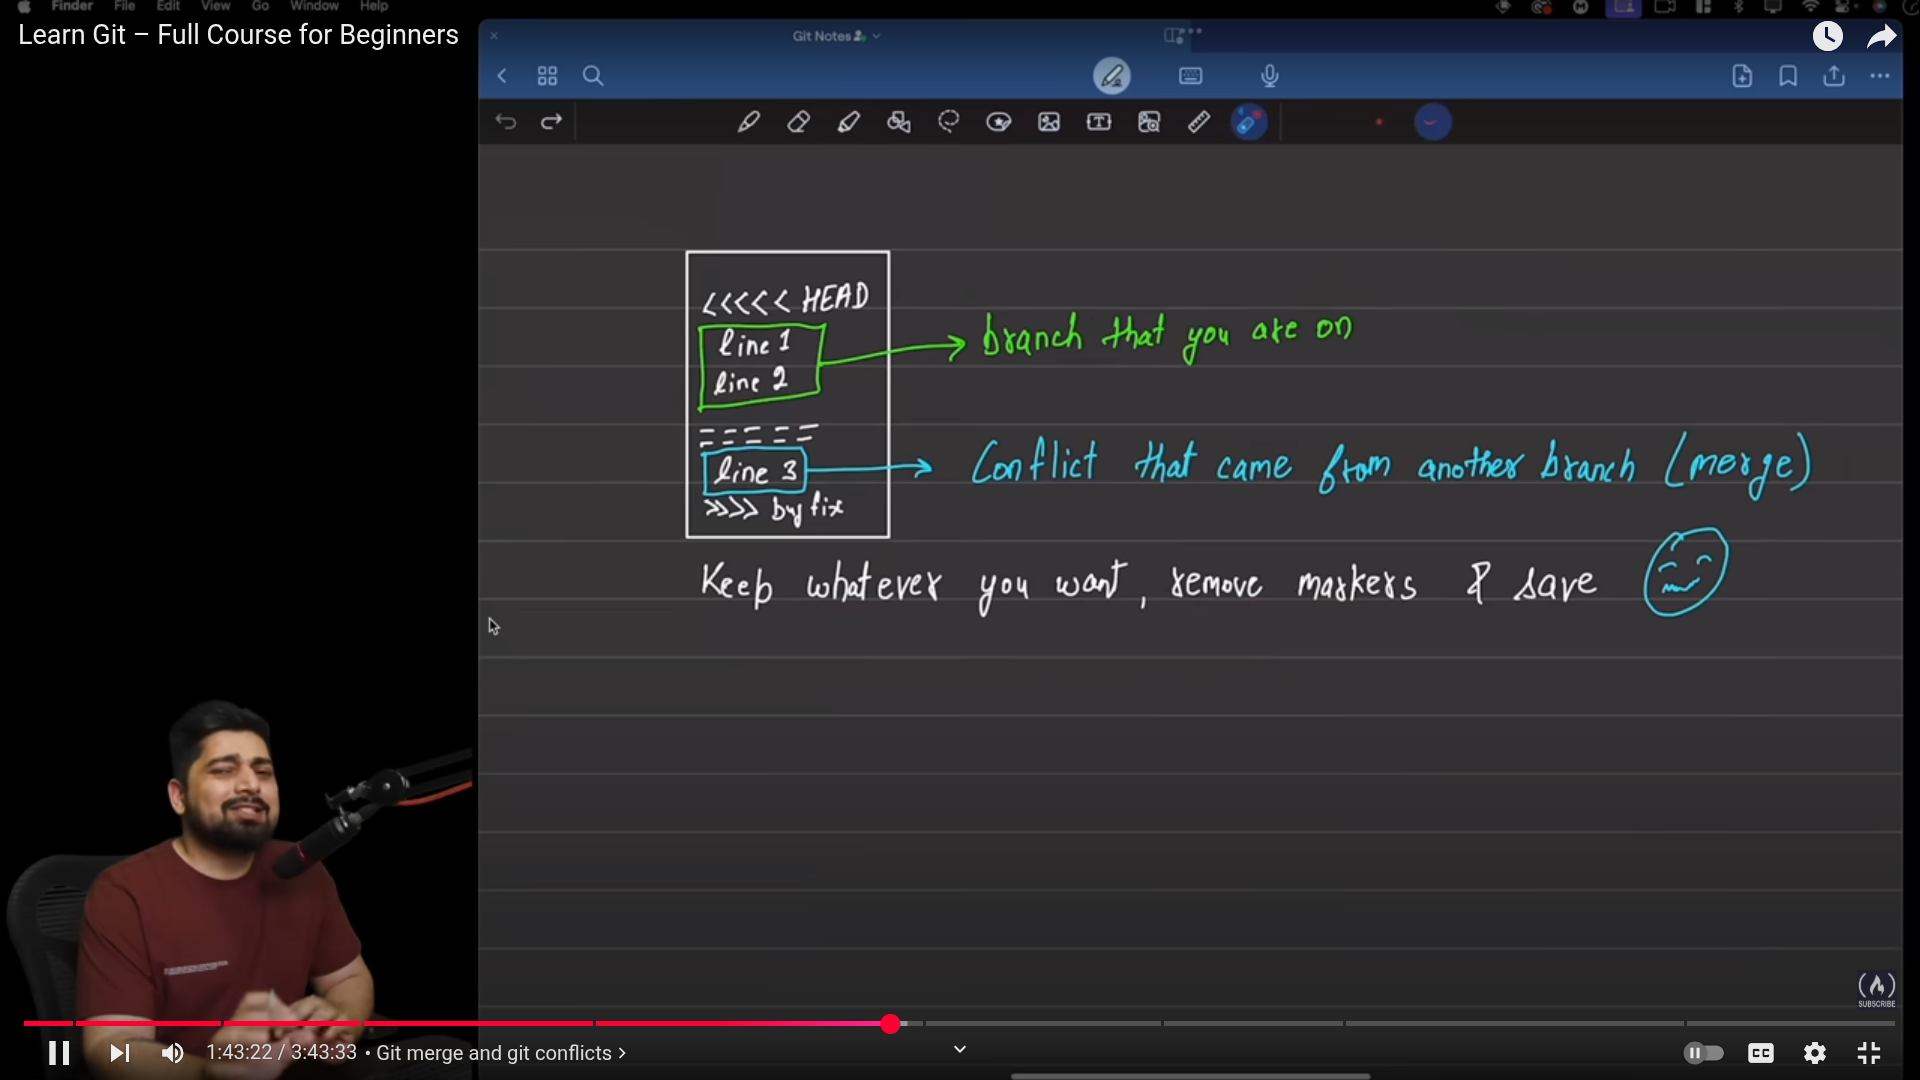 Finder File Edit View Go Window Help
Learn Git – Full Course for Beginners
Git Notes
<<<<< HEAD
line 1
line 2
branch that you are on
=====
line 3
Conflict that came from another branch (merge)
>>>> bugfix
Keep whatever you want, remove markers & save
SUBSCRIBE
1:43:22 / 3:43:33 • Git merge and git conflicts >
CC